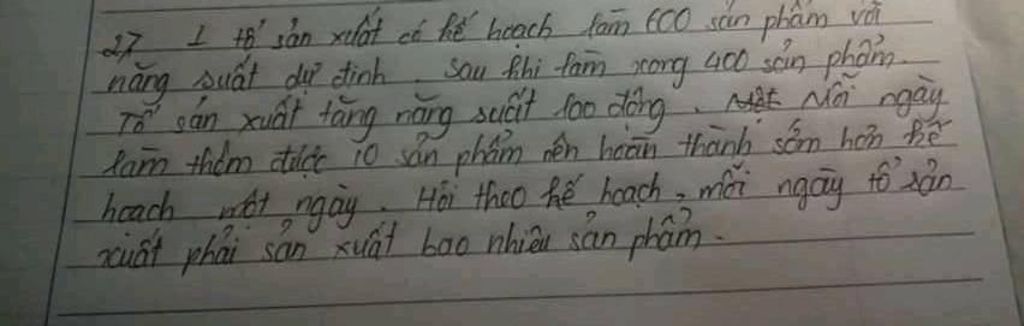 27 1 tổ sản xuất có kế hoạch làm 600 sản phẩm với
năng suất dự định. Sau khi làm xong 400 sản phẩm.
Tổ sản xuất tăng năng suất lao động. Mỗi ngày
làm thêm được 10 sản phẩm nên hoàn thành sớm hơn kế
hoạch một ngày. Hỏi theo kế hoạch, mỗi ngày tổ sản
xuất phải sản xuất bao nhiêu sản phẩm.